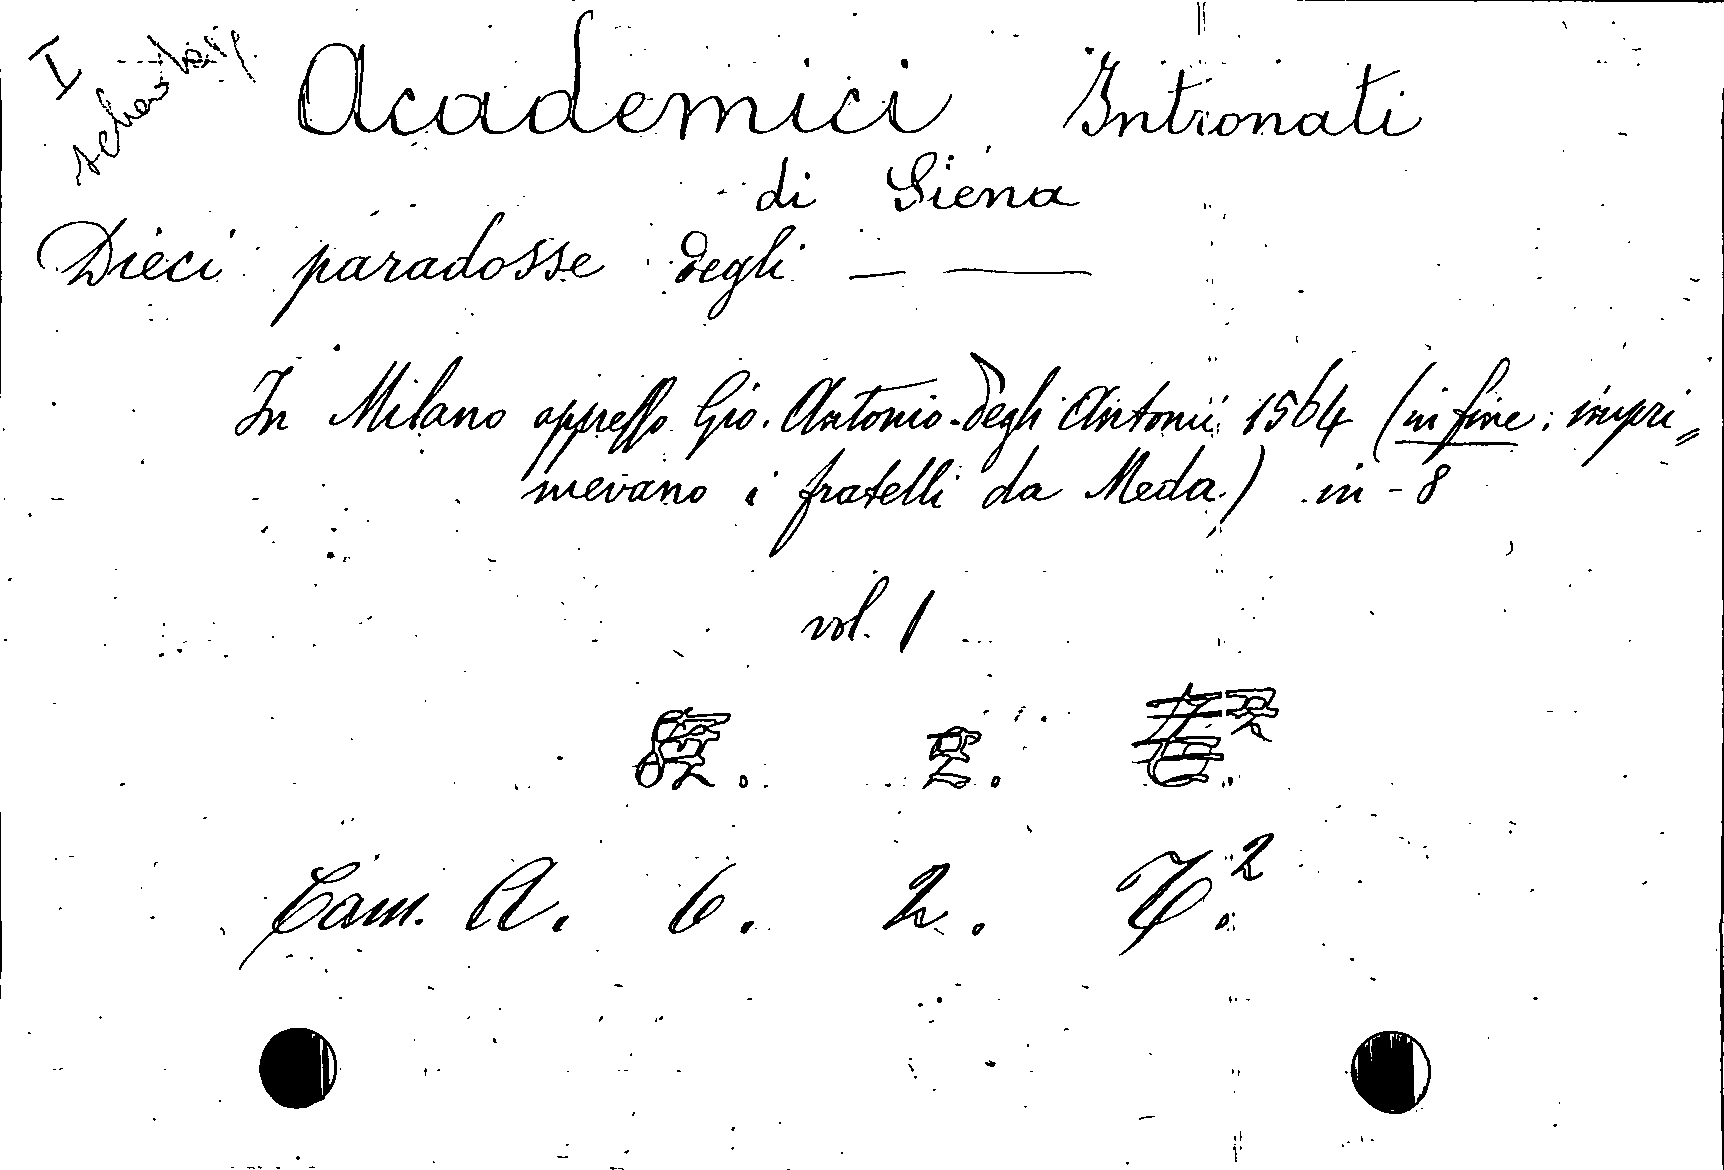 I
Academici Intronati
di Siena
Dieci paradosse degli — —
In Milano appresso Gio. Antonio degli Antonii 1564 (in fine: impri„
mevano i fratelli da Meda.) in-8
vol. 1
Cam. A. 6. 2.